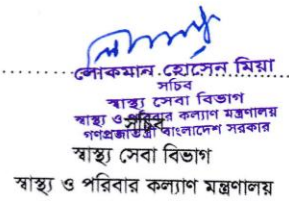 লোকমান হোসেন মিয়া
সচিব
স্বাস্থ্য সেবা বিভাগ
স্বাস্থ্য ও পরিবার কল্যাণ মন্ত্রণালয়
গণপ্রজাতন্ত্রী বাংলাদেশ সরকার
সচিব
স্বাস্থ্য সেবা বিভাগ
স্বাস্থ্য ও পরিবার কল্যাণ মন্ত্রণালয়